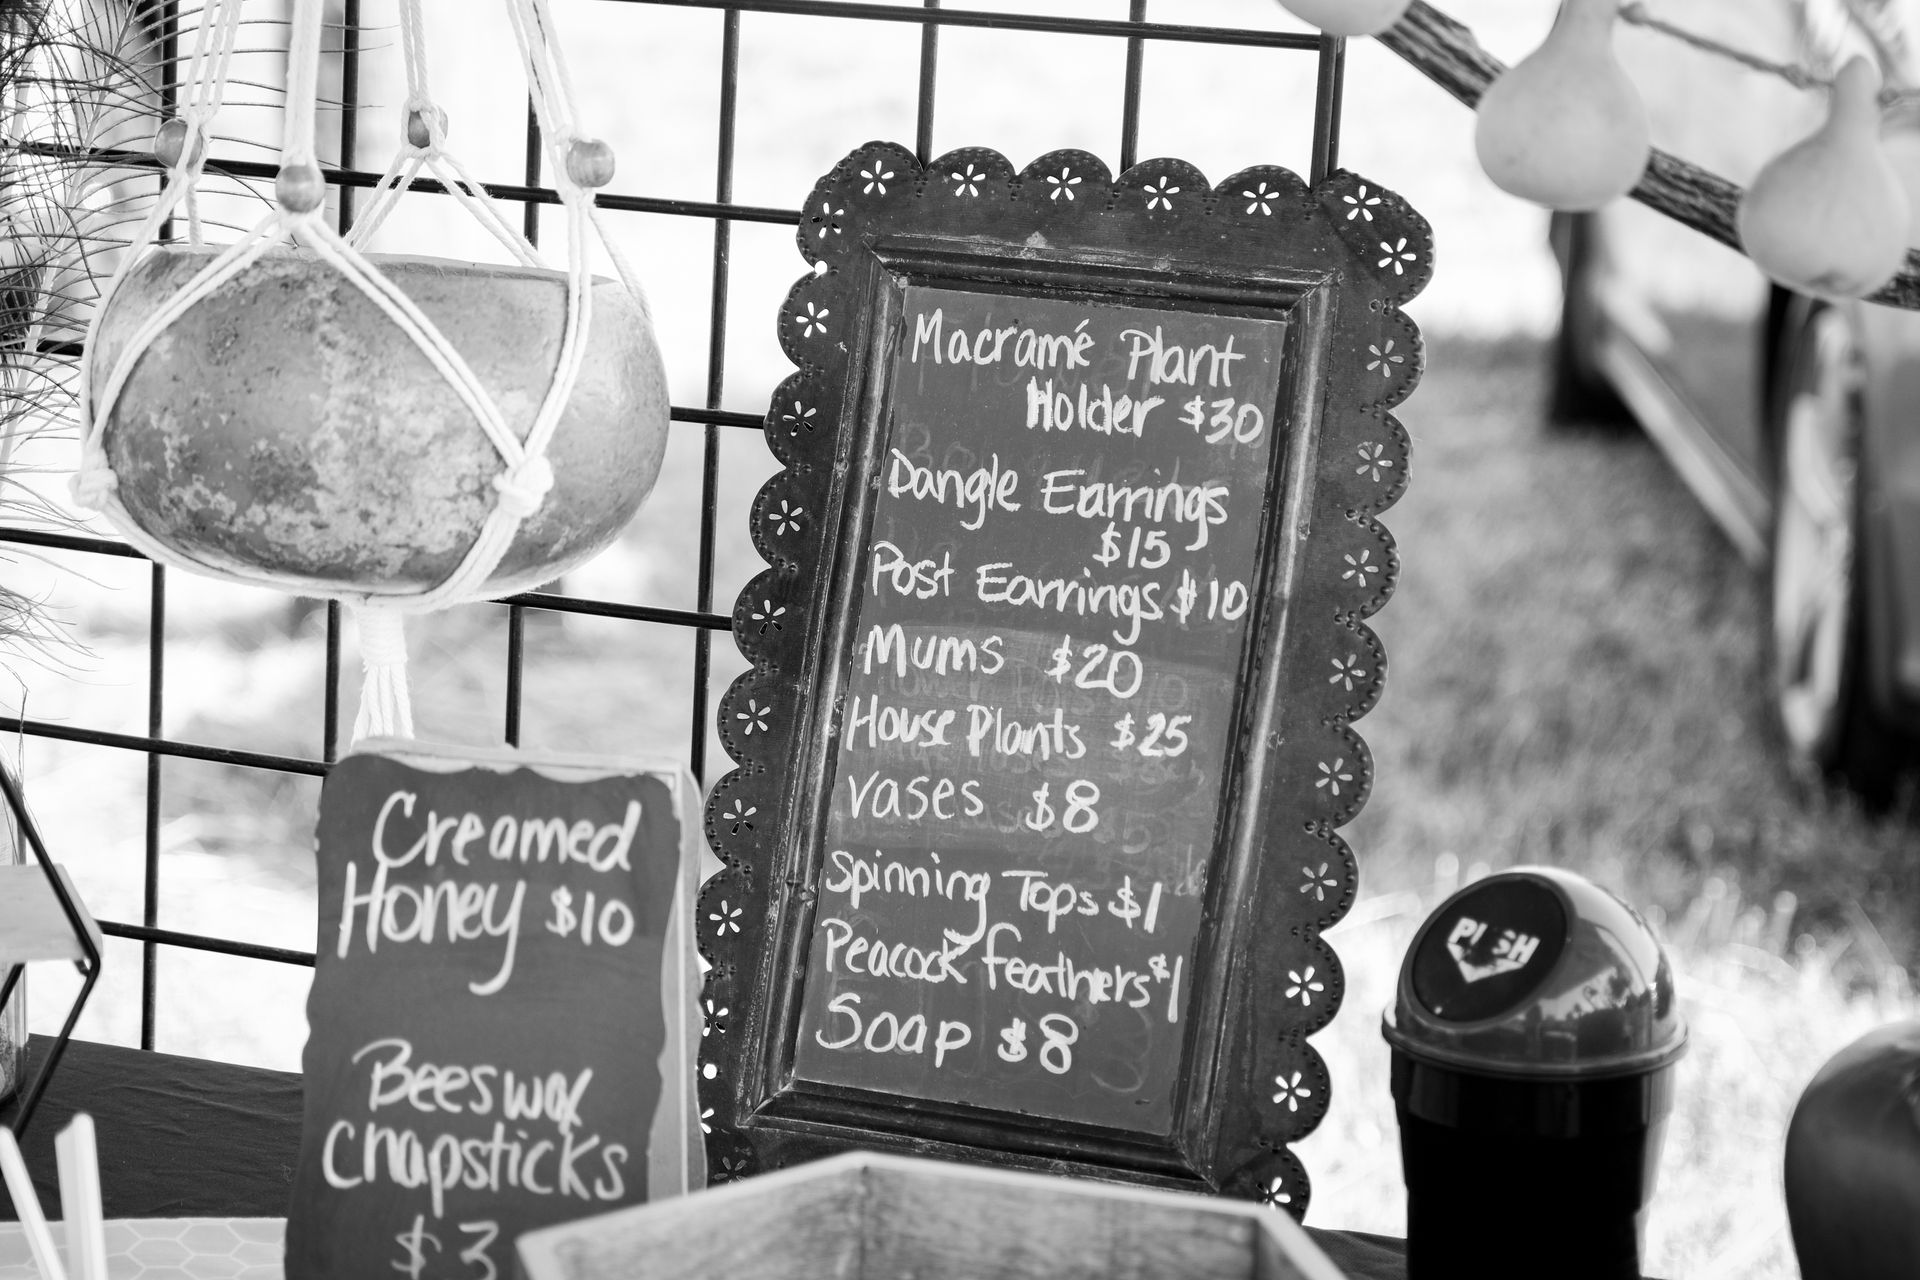 Macramé Plant
Holder $30
Dangle Earrings
$15
Post Earrings $10
Mums $20
House Plants $25
Vases $8
Spinning Tops $1
Peacock feathers $1
Soap $8
Creamed
Honey $10
Beeswax
Chapsticks
$3
PUSH